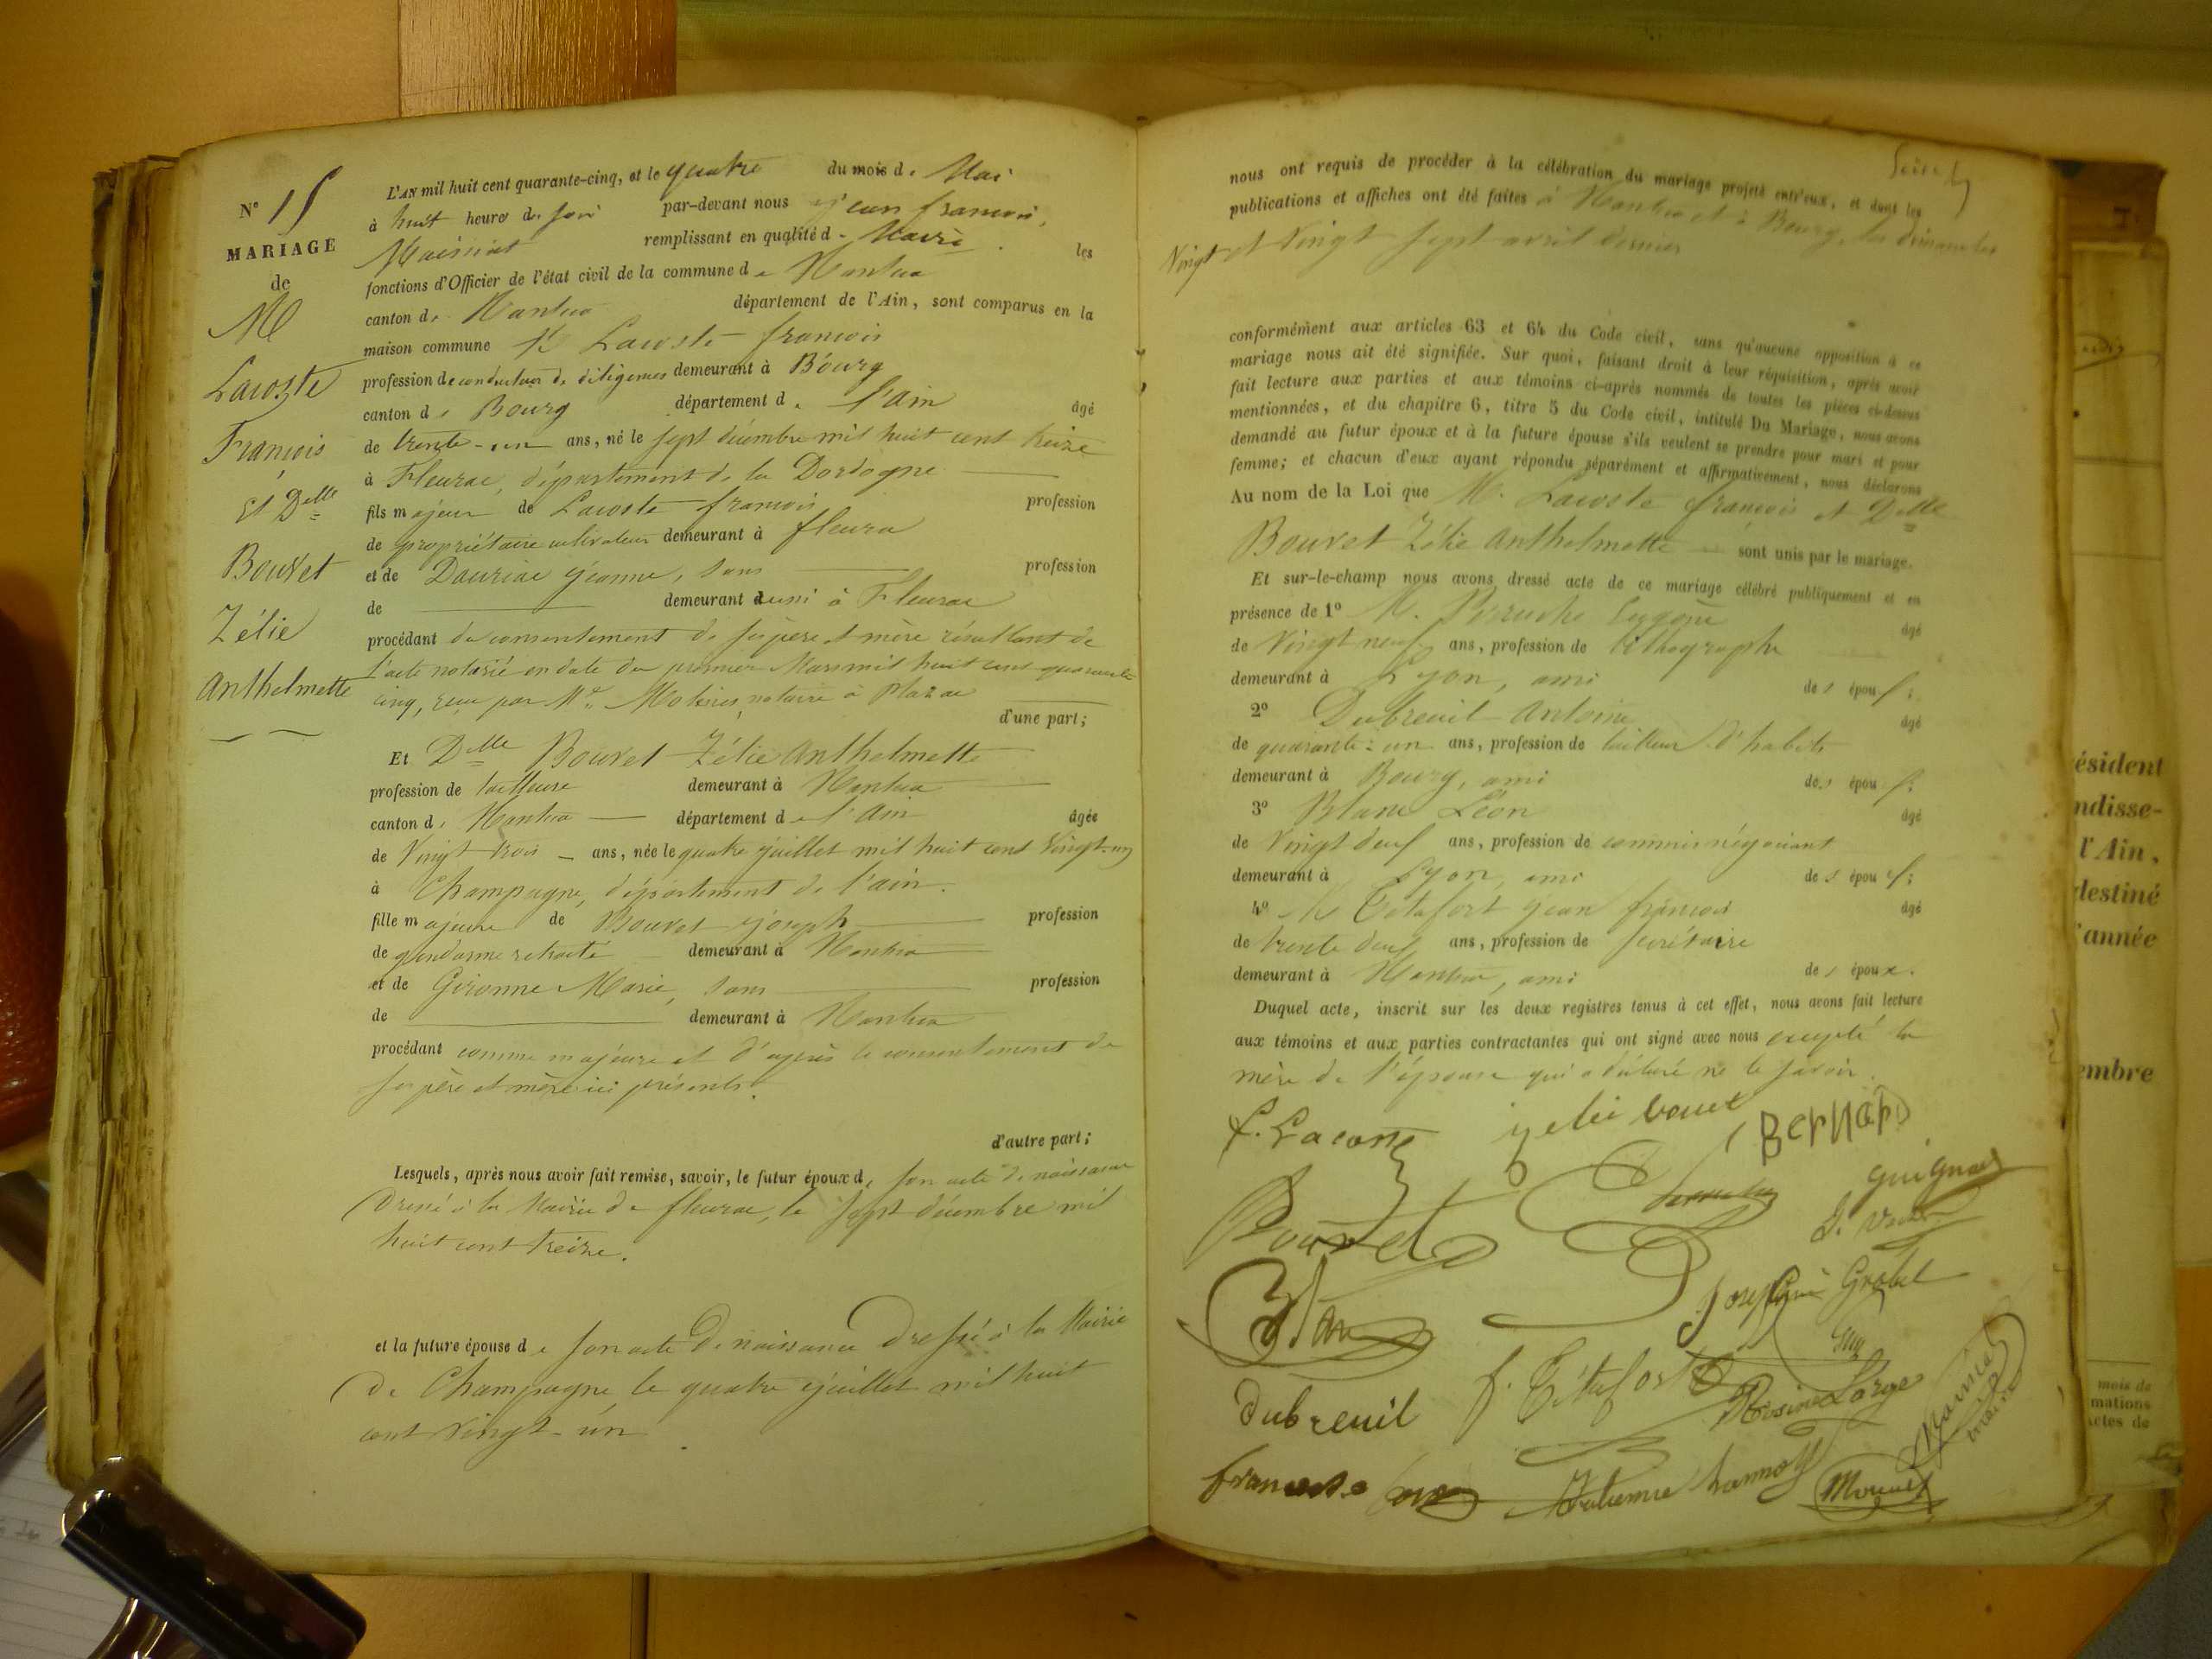 N° 15
MARIAGE
de
M
Lacoste
François
et Delle
Bouvet
Zélie
Anthelmette
L'AN mil huit cent quarante-cinq, et le quatre du mois de Mai
à huit heures du soir par-devant nous Jean françois
Maissiat remplissant en qualité de Maire les
fonctions d'Officier de l'état civil de la commune de Nantua
canton de Nantua département de l'Ain, sont comparus en la
maison commune Sr Lacoste françois
profession de conducteur de diligences demeurant à Bourg
canton de Bourg département de l'ain âgé
de trente-un ans, né le sept décembre mil huit cent treize
à Fleurac, département de la Dordogne
fils majeur de Lacoste françois profession
de propriétaire cultivateur demeurant à fleurac
et de Dauriac jeanne, sans profession
de demeurant aussi à Fleurac
procédant du consentement de ses père et mère résultant de
l'acte notarié en date du premier Mars mil huit cent quarante
cinq, reçu par Me notaire à Plazac
d'une part;
Et Delle Bouvet Zélie Anthelmette
profession de tailleuse demeurant à Nantua
canton de Nantua département de l'Ain âgée
de Vingt trois ans, née le quatre juillet mil huit cent Vingt-un
à Champagne, département de l'ain.
fille majeure de Bouvet joseph profession
de gendarme retraité demeurant à Nantua
et de Gironne Marie, sans profession
de demeurant à Nantua
procédant comme majeure et d'après le consentement de
ses père et mère ici présents.
d'autre part;
Lesquels, après nous avoir fait remise, savoir, le futur époux de son acte de naissance
dressé à la Mairie de fleurac, le sept décembre mil
huit cent treize.
et la future épouse de son acte de naissance dressé à la Mairie
de Champagne le quatre juillet mil huit
cent Vingt-un
nous ont requis de procéder à la célébration du mariage projeté entr'eux, et dont les
publications et affiches ont été faites à Nantua et à Bourg, les dimanches
Vingt et Vingt-sept avril dernier
conformément aux articles 63 et 64 du Code civil, sans qu'aucune opposition à ce
mariage nous ait été signifiée. Sur quoi, faisant droit à leur réquisition, après avoir
fait lecture aux parties et aux témoins ci-après nommés de toutes les pièces ci-dessus
mentionnées, et du chapitre 6, titre 5 du Code civil, intitulé Du Mariage, nous avons
demandé au futur époux et à la future épouse s'ils veulent se prendre pour mari et pour
femme; et chacun d'eux ayant répondu séparément et affirmativement, nous déclarons
Au nom de la Loi que M. Lacoste françois et Delle
Bouvet Zélie Anthelmette sont unis par le mariage.
Et sur-le-champ nous avons dressé acte de ce mariage célébré publiquement et en
présence de 1° M. Perruche Eugène âgé
de Vingt neuf ans, profession de lithographe
demeurant à Lyon, ami des époux;
2° Dubreuil Antoine âgé
de quarante-un ans, profession de tailleur d'habits
demeurant à Bourg, ami des époux;
3° Blanc Léon âgé
de Vingt deux ans, profession de commis négociant
demeurant à Lyon, ami des époux;
4° M Tétafort jean françois âgé
de trente deux ans, profession de secrétaire
demeurant à Nantua, ami des époux.
Duquel acte, inscrit sur les deux registres tenus à cet effet, nous avons fait lecture
aux témoins et aux parties contractantes qui ont signé avec nous excepté la
mère de l'épouse qui a déclaré ne le savoir.
f. Lacoste zelie bouvet Bernard
Bouvet
Josephine Grobel
Blanc
Dubreuil f. Tétafort Rosine Large
Maissiat
maire
ésident
ndisse-
l'Ain,
destiné
'année
embre
mois de
mations
actes de